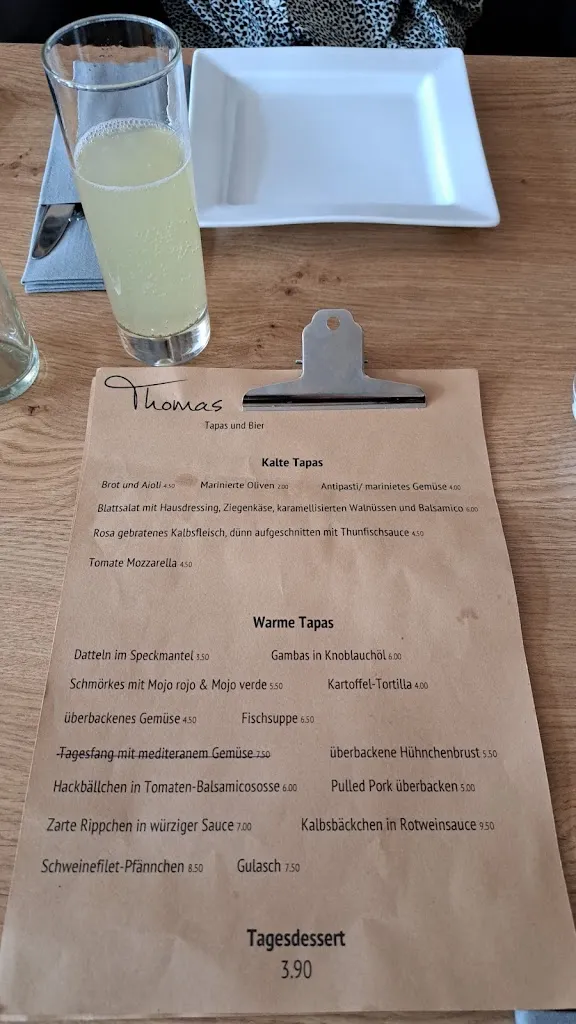 Thomas
Tapas und Bier
Kalte Tapas
Brot und Aioli 4.50 Marinierte Oliven 2.00 Antipasti/ marinietes Gemüse 4.00
Blattsalat mit Hausdressing, Ziegenkäse, karamellisierten Walnüssen und Balsamico 6.00
Rosa gebratenes Kalbsfleisch, dünn aufgeschnitten mit Thunfischsauce 4.50
Tomate Mozzarella 4.50
Warme Tapas
Datteln im Speckmantel 3.50 Gambas in Knoblauchöl 6.00
Schmörkes mit Mojo rojo & Mojo verde 5.50 Kartoffel-Tortilla 4.00
überbackenes Gemüse 4.50 Fischsuppe 6.50
Tagesfang mit mediteranem Gemüse 7.50 überbackene Hühnchenbrust 5.50
Hackbällchen in Tomaten-Balsamicososse 6.00 Pulled Pork überbacken 5.00
Zarte Rippchen in würziger Sauce 7.00 Kalbsbäckchen in Rotweinsauce 9.50
Schweinefilet-Pfännchen 8.50 Gulasch 7.50
Tagesdessert
3.90